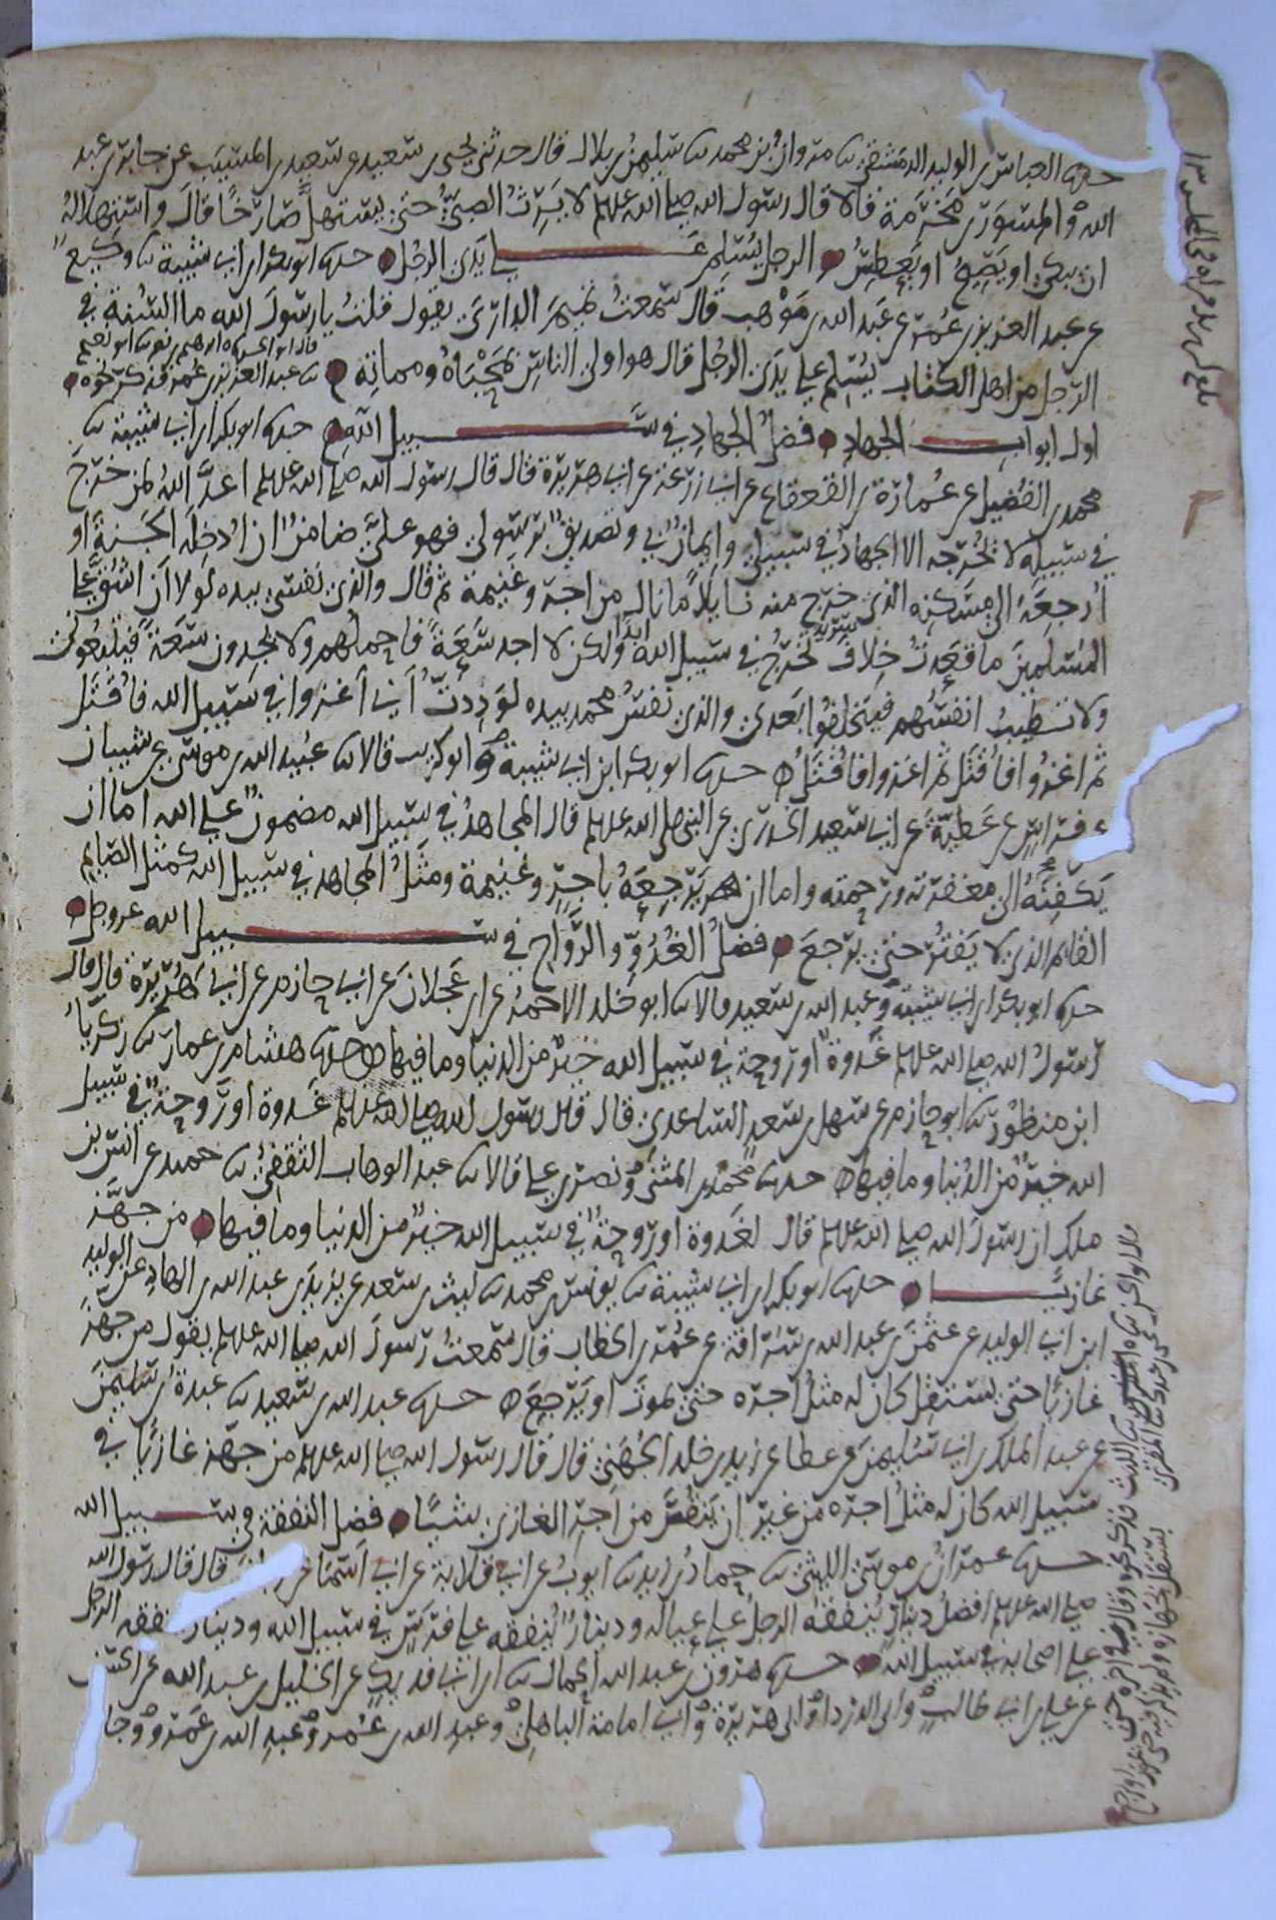 حدثنا العباس بن الوليد الدمشقي ثنا مروان بن محمد ثنا سليمن بن بلال قال حدثني يحيى بن سعيد عن سعيد بن المسيب عن جابر بن عبد
الله والمسور بن مخرمة قالا قال رسول الله صلى الله عليه وسلم لا يرث الصبي حتى يستهل صارخا قال واستهلاله
ان يبكي او يصيح او يعطس الرجل يسلم على يدي الرجل حدثنا ابو بكر بن ابي شيبة ثنا وكيع
عن عبد العزيز بن عمر عن عبد الله بن موهب قال سمعت تميم الداري يقول قلت يا رسول الله ما السنة في
الرجل من اهل الكتاب يسلم على يدي الرجل قال هو اولى الناس بمحياه ومماته
ثنا ابو نعيم ثنا عبد العزيز بن عمر فذكر نحوه
اول ابواب الجهاد فضل الجهاد في سبيل الله حدثنا ابو بكر بن ابي شيبة ثنا
محمد بن الفضيل عن عمارة بن القعقاع عن ابي زرعة عن ابي هريرة قال قال رسول الله صلى الله عليه وسلم اعد الله لمن خرج
في سبيله لا يخرجه الا الجهاد في سبيلي وايمان بي وتصديق برسولي فهو علي ضامن ان ادخله الجنة او
ارجعه الى مسكنه الذي خرج منه نايلا ما نال من اجر وغنيمة ثم قال والذي نفسي بيده لولا ان اشق على
المسلمين ما قعدت خلاف سرية تخرج في سبيل الله ابدا ولكن لا اجد سعة فاحملهم ولا يجدون سعة فيتبعوني
ولا تطيب انفسهم فيتخلفوا بعدي والذي نفس محمد بيده لوددت اني اغزوا في سبيل الله فاقتل
ثم اغزوا فاقتل ثم اغزوا فاقتل حدثنا ابو بكر ابن ابي شيبة وابو كريب قالا ثنا عبيد الله بن موسى عن شيبان
عن فراس عن عطية عن ابي سعيد الخدري عن النبي صلى الله عليه وسلم قال المجاهد في سبيل الله مضمون على الله اما ان
يكفته الى مغفرته ورحمته واما ان يرجعه باجر وغنيمة ومثل المجاهد في سبيل الله كمثل الصايم
القايم الذي لا يفتر حتى يرجع فضل الغدو والرواح في سبيل الله عز وجل
حدثنا ابو بكر بن ابي شيبة وعبد الله بن سعيد قالا ثنا ابو خلد الاحمر عن ابن عجلان عن ابي حازم عن ابي هريرة قال قال
رسول الله صلى الله عليه وسلم غدوة او روحة في سبيل الله خير من الدنيا وما فيها حدثنا هشام بن عمار ثنا زكريا
ابن منظور ثنا ابو حازم عن سهل بن سعد الساعدي قال قال رسول الله صلى الله عليه وسلم غدوة او روحة في سبيل
الله خير من الدنيا وما فيها حدثنا محمد بن المثنى ونصر بن علي قالا ثنا عبد الوهاب الثقفي ثنا حميد عن انس بن
ملك ان رسول الله صلى الله عليه وسلم قال لغدوة او روحة في سبيل الله خير من الدنيا وما فيها من جهز
غازيا حدثنا ابو بكر بن ابي شيبة ثنا يونس بن محمد ثنا ليث بن سعد عن يزيد بن عبد الله بن الهاد عن الوليد
ابن ابي الوليد عن عثمن بن عبد الله بن سراقة عن عمر بن الخطاب قال سمعت رسول الله صلى الله عليه وسلم يقول من جهز
غازيا حتى يستقل كان له مثل اجره حتى يموت او يرجع حدثنا عبد الله بن سعيد ثنا عبدة بن سليمن
عن عبد الملك بن ابي سليمن عن عطا عن زيد بن خلد الجهني قال قال رسول الله صلى الله عليه وسلم من جهز غازيا في
سبيل الله كان له مثل اجره من غير ان ينقص من اجر الغازي شيا فضل النفقة في سبيل الله
حدثنا عمران بن موسى الليثي ثنا حماد بن زيد ثنا ايوب عن ابي قلابة عن ابي اسما عن قال قال رسول الله
صلى الله عليه وسلم افضل دينار ينفقه الرجل على عياله ودينار ينفقه على فرس في سبيل الله ودينار ينفقه الرجل
على اصحابه في سبيل الله حدثنا هرون بن عبد الله الحمال ثنا ابن ابي فديك عن الخليل بن عبد الله عن الحسن
عن علي بن ابي طالب وابي الدرداء وابي هريرة وابي امامة الباهلي وعبد الله بن عمر وعبد الله بن عمرو وجا